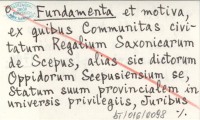 Fundamenta et motiva,
ex quibus Communitas civi-
tatum Regalium Saxonicarum
de Scepus, alias sic dictorum
Oppidorum Scepusiensium se,
Statum suum provincialem in
universis privilegiis, Juribus
bt/016/0098 ·/.